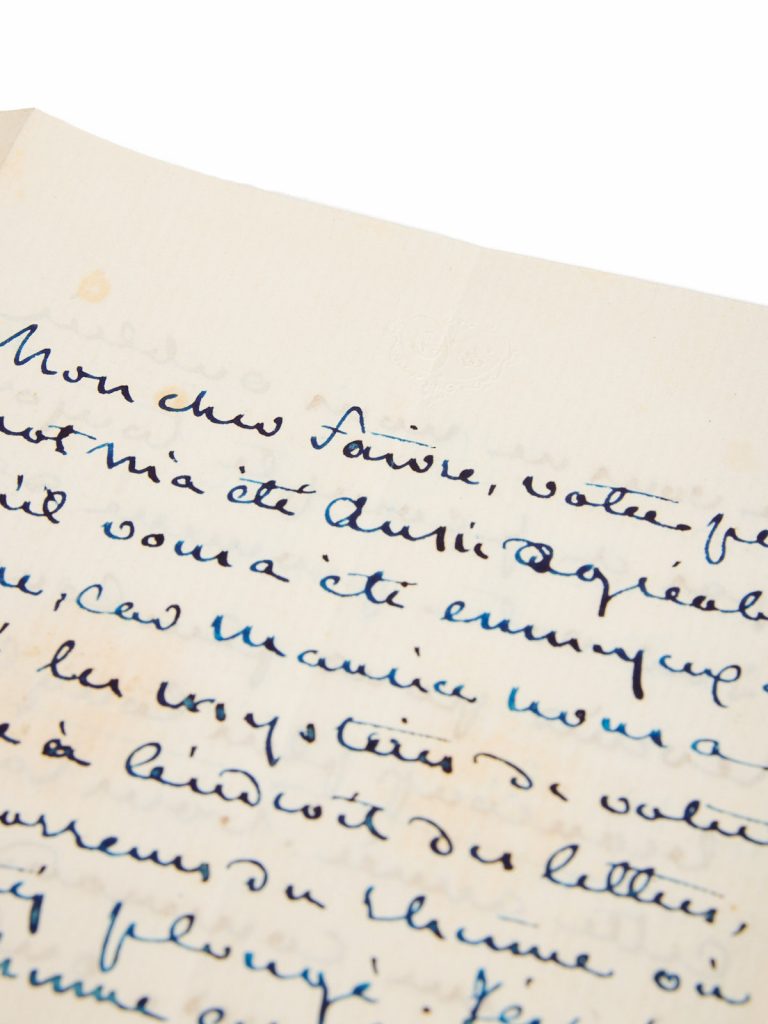 Mon cher Faivre, votre pe
mot m'a été aussi agréab
'il vous a été ennuyeux
, car Maurice nous a
les mystères de votre
à l'endroit des lettres,
du rhume où
plongé.